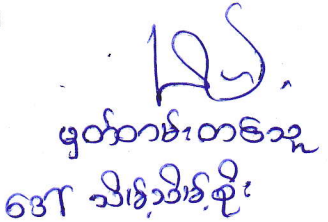 မှတ်တမ်းတင်သူ
ဒေါ်သိမ့်သိမ့်စိုး